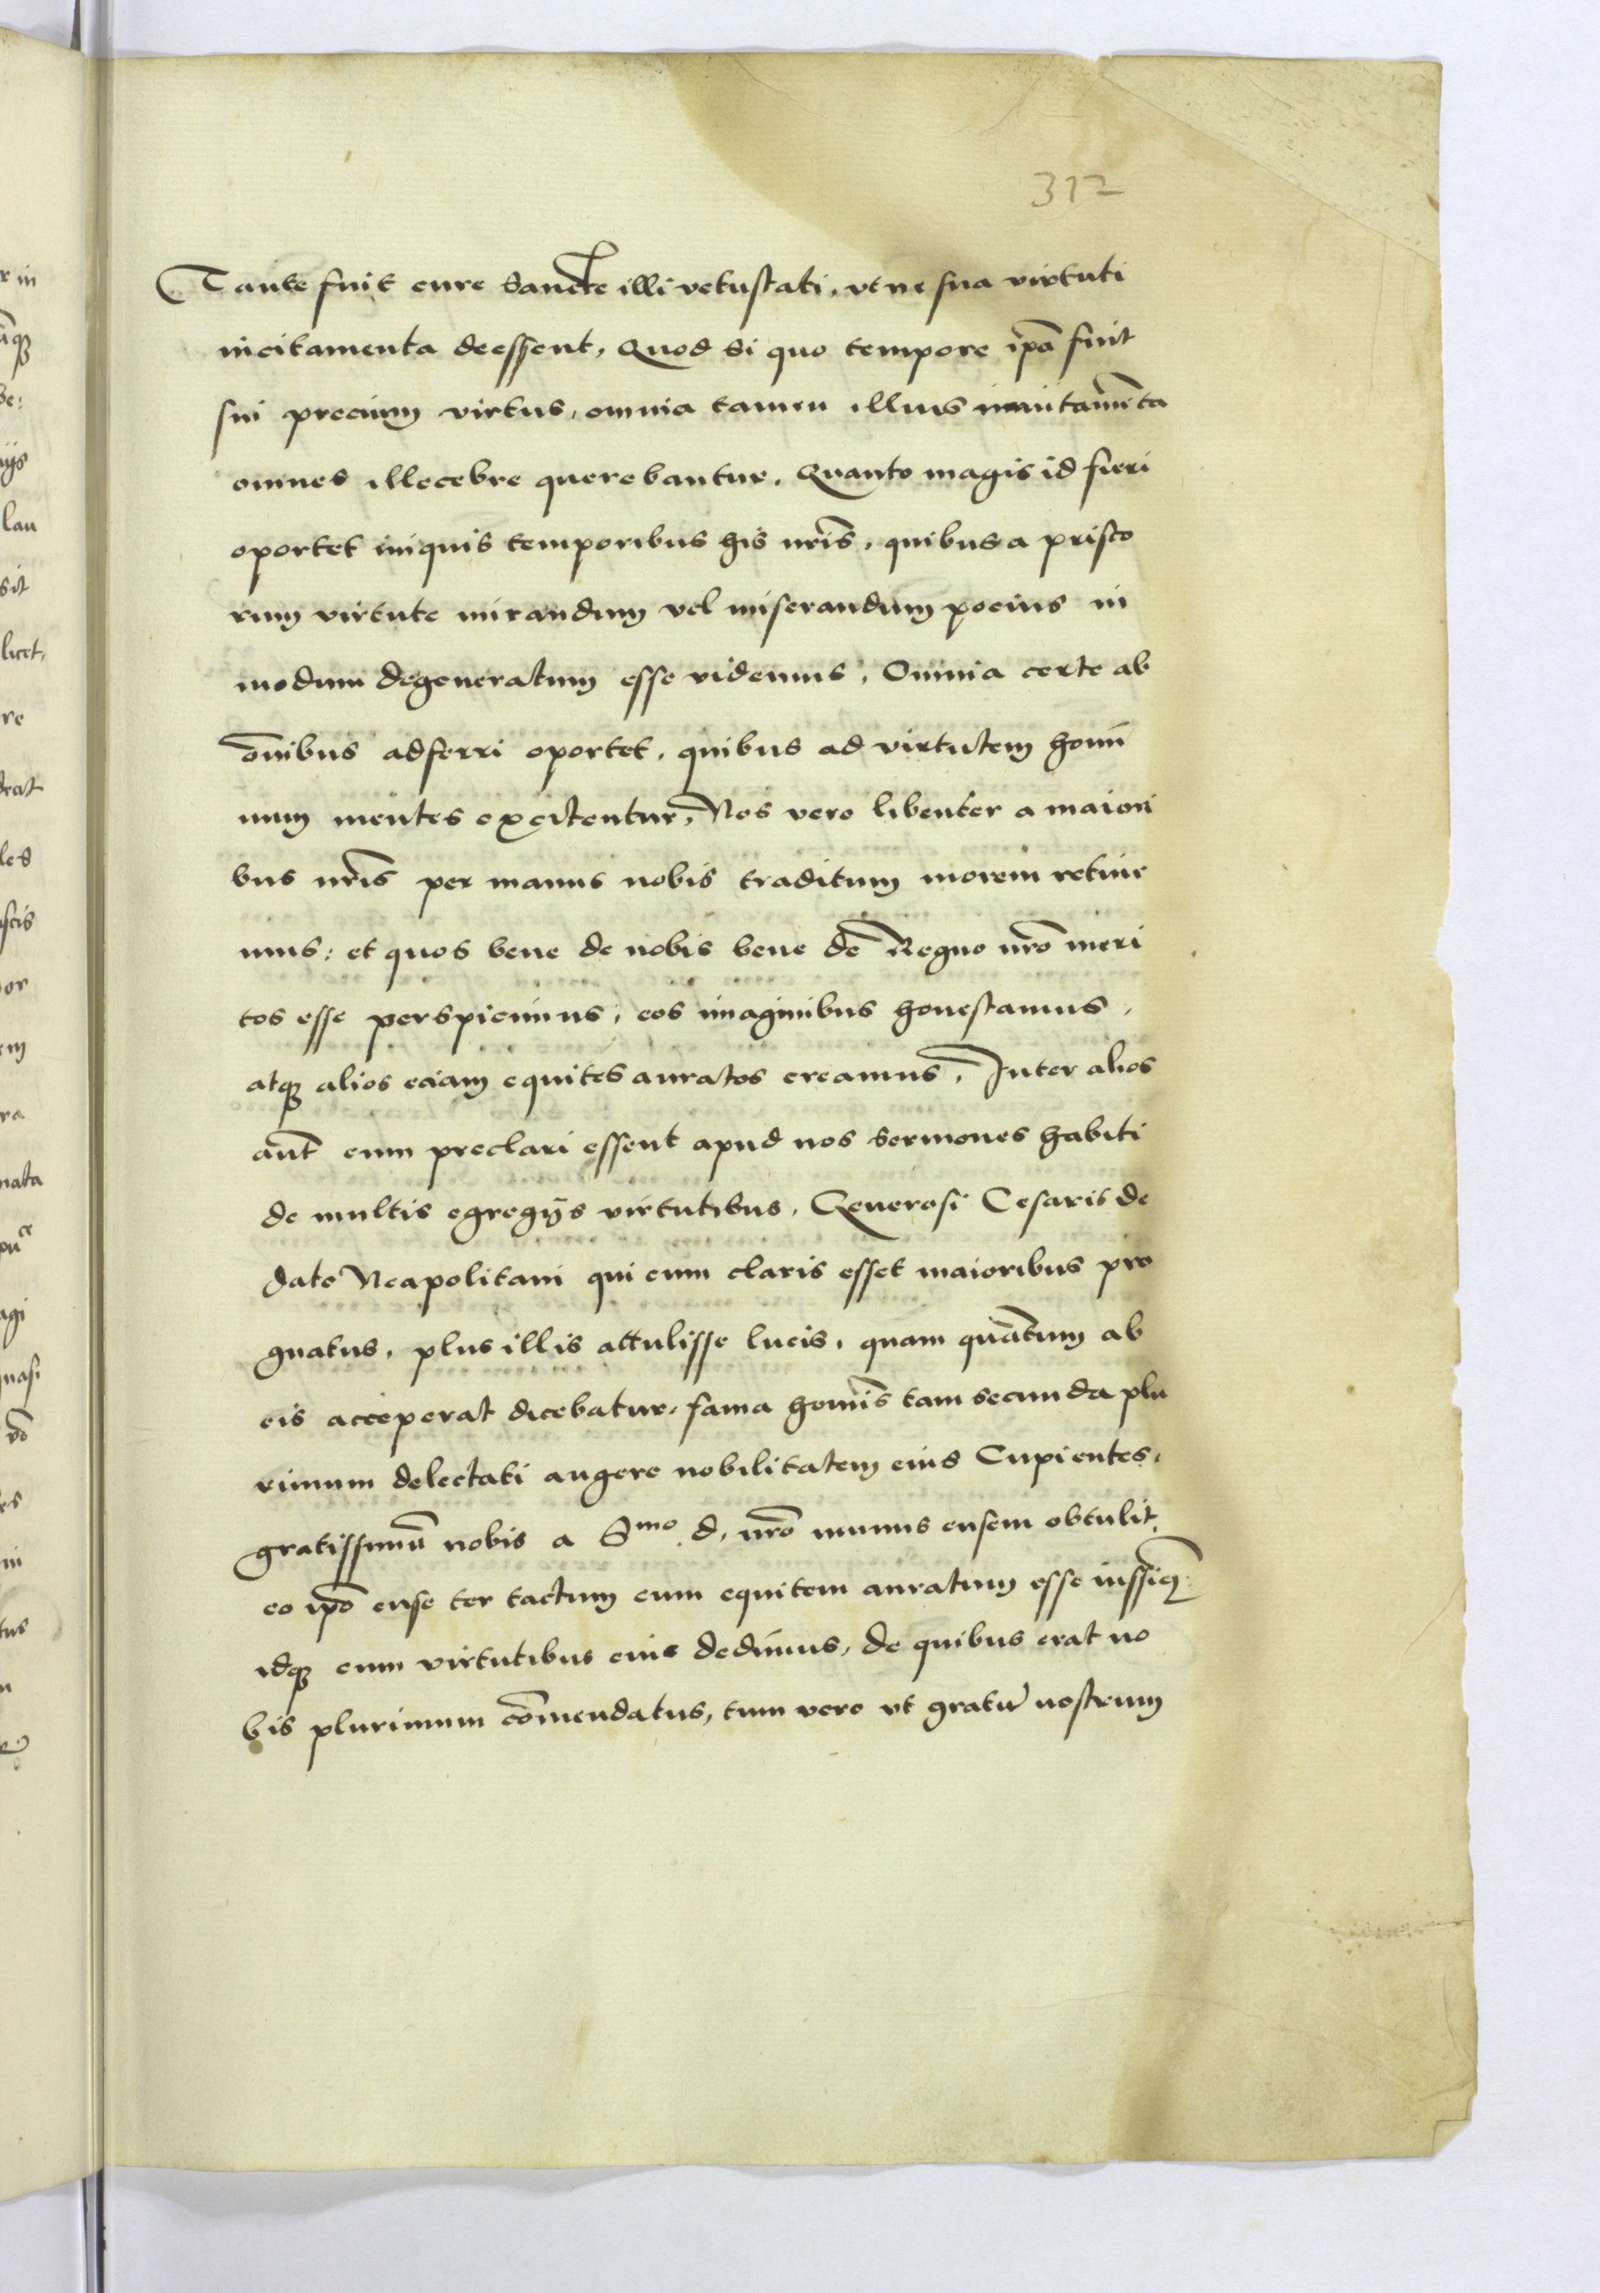 312
Tante fuit cure Sancte illi vetustati, ut ne sua virtuti
incitamenta deessent, Quod si quo tempore ip̄a fuit
sui precium virtus, omnia tamen illius inuitamēta
omnes illecebre querebantur. Quanto magis id fieri
oportet iniquis temporibus his nr̄is, quibus a prisco
rum virtute mirandum vel miserandum pocius in
modum degeneratum esse videmus, Omnia certe ab
ōnibus adferri oportet, quibus ad virtutem homi
num mentes excitentur, Nos vero libenter a maiori
bus nr̄is per manus nobis traditum morem retine
mus: et quos bene de nobis bene de Regno nr̄o meri
tos esse perspicimus, eos imaginibus honestamus,
atq̄ alios eciam equites auratos creamus, Inter alios
aūt cum preclari essent apud nos sermones habiti
de multis egregijs virtutibus, Generosi Cesaris de
dato Neapolitani qui cum claris esset maioribus pro
gnatus, plus illis attulisse lucis, quam quātum ab
eis acceperat dicebatur, fama homīs tam secunda plu
rimum delectati augere nobilitatem eius Cupientes,
gratissimū nobis a Smo d, nr̄o munus ensem obtulit,
eo ip̄o ense ter tactum eum equitem auratum esse iussim9
idq̄ cum virtutibus eius dedimus, de quibus erat no
bis plurimum cōmendatus, tum vero ut gratū nostrum